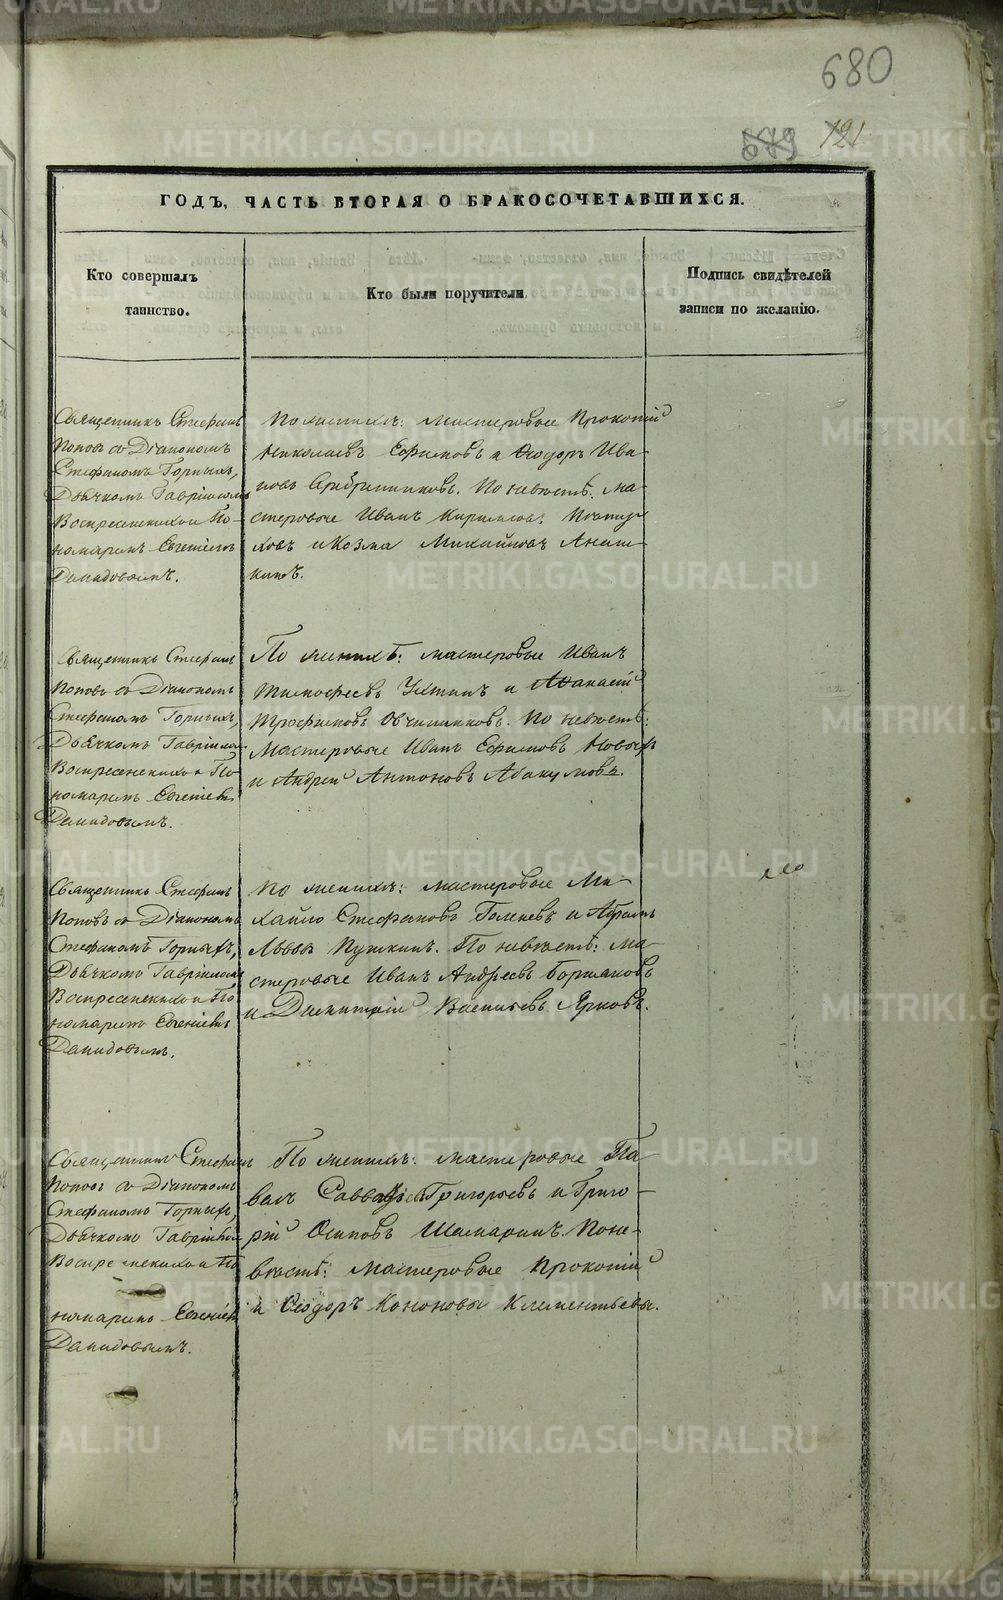 680
679 121
ГОДЪ, ЧАСТЬ ВТОРАЯ О БРАКОСОЧЕТАВШИХСЯ.
Кто совершалъ
таинство.
Кто были поручители.
Подпись свидѣтелей
записи по желанію.
Священникъ Стефанъ
Поповъ со Діакономъ
Стефаномъ Горныхъ,
Дьячкомъ Гавріиломъ
Воскресенскимъ и По-
номаремъ Евгеніемъ
Давидовымъ.
По женихѣ: мастеровые Прокопій
Николаевъ Ефимовъ и Ѳеодоръ Ива-
новъ Серебрянниковъ. По невѣстѣ: ма-
стеровые Иванъ Кириловъ
ховъ и Козма Михайловъ Анаш-
кинъ.
Священникъ Стефанъ
Поповъ со Діакономъ
Стефаномъ Горныхъ,
Дьячкомъ Гавріиломъ
Воскресенскимъ и По-
номаремъ Евгеніемъ
Давидовымъ.
По женихѣ: мастеровые Иванъ
Тимофеевъ и Аѳанасій
Трофимовъ Овчинниковъ. По невѣстѣ:
Мастеровые Иванъ Ефимовъ Новыхъ
и Андрей Антоновъ Абакумовъ.
Священникъ Стефанъ
Поповъ со Діакономъ
Стефаномъ Горныхъ,
Дьячкомъ Гавріиломъ
Воскресенскимъ и По-
номаремъ Евгеніемъ
Давидовымъ.
По женихѣ: мастеровые Ми-
хайло Стефановъ Голеневъ и Абрамъ
Львовъ Пушкинъ. По невѣстѣ: Ма-
стеровые Иванъ Андреевъ Боршаковъ
и Димитрій Васильевъ Ярковъ.
Священникъ Стефанъ
Поповъ со Діакономъ
Стефаномъ Горныхъ,
Дьячкомъ Гавріиломъ
Воскресенскимъ и По-
номаремъ Евгеніемъ
Давидовымъ.
По женихѣ: мастеровые Па-
велъ Григорьевъ и Григо-
рій Осиповъ Шамаринъ. По не-
вѣстѣ: Мастеровые Прокопій
и Ѳеодоръ Кононовы Клементьевы.
METRIKI.GASO-URAL.RU